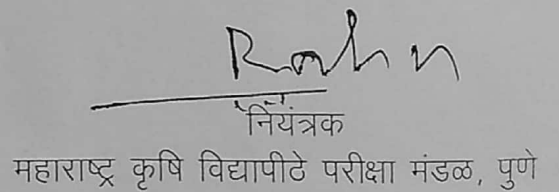 नियंत्रक
महाराष्ट्र कृषि विद्यापीठे परीक्षा मंडळ, पुणे